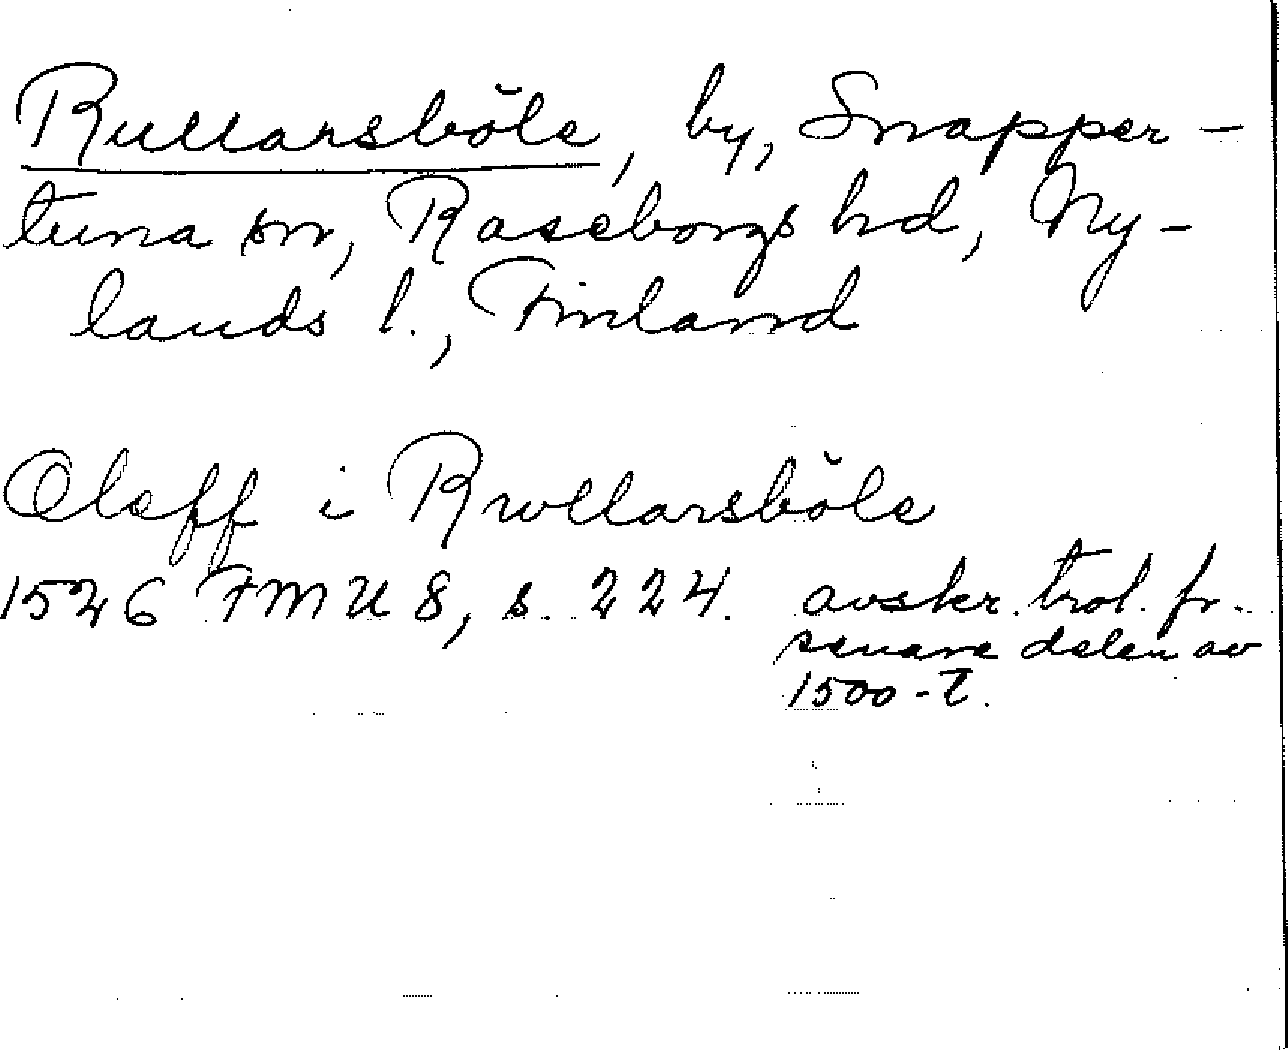 Rullarsböle, by, Snapper-
tuna sn, Raseborgs hd, Ny-
lands l., Finland
Oleff i Rwllarsböle
1526 FMU 8, s. 224. avskr. trol. fr.
senare delen av
1500-t.